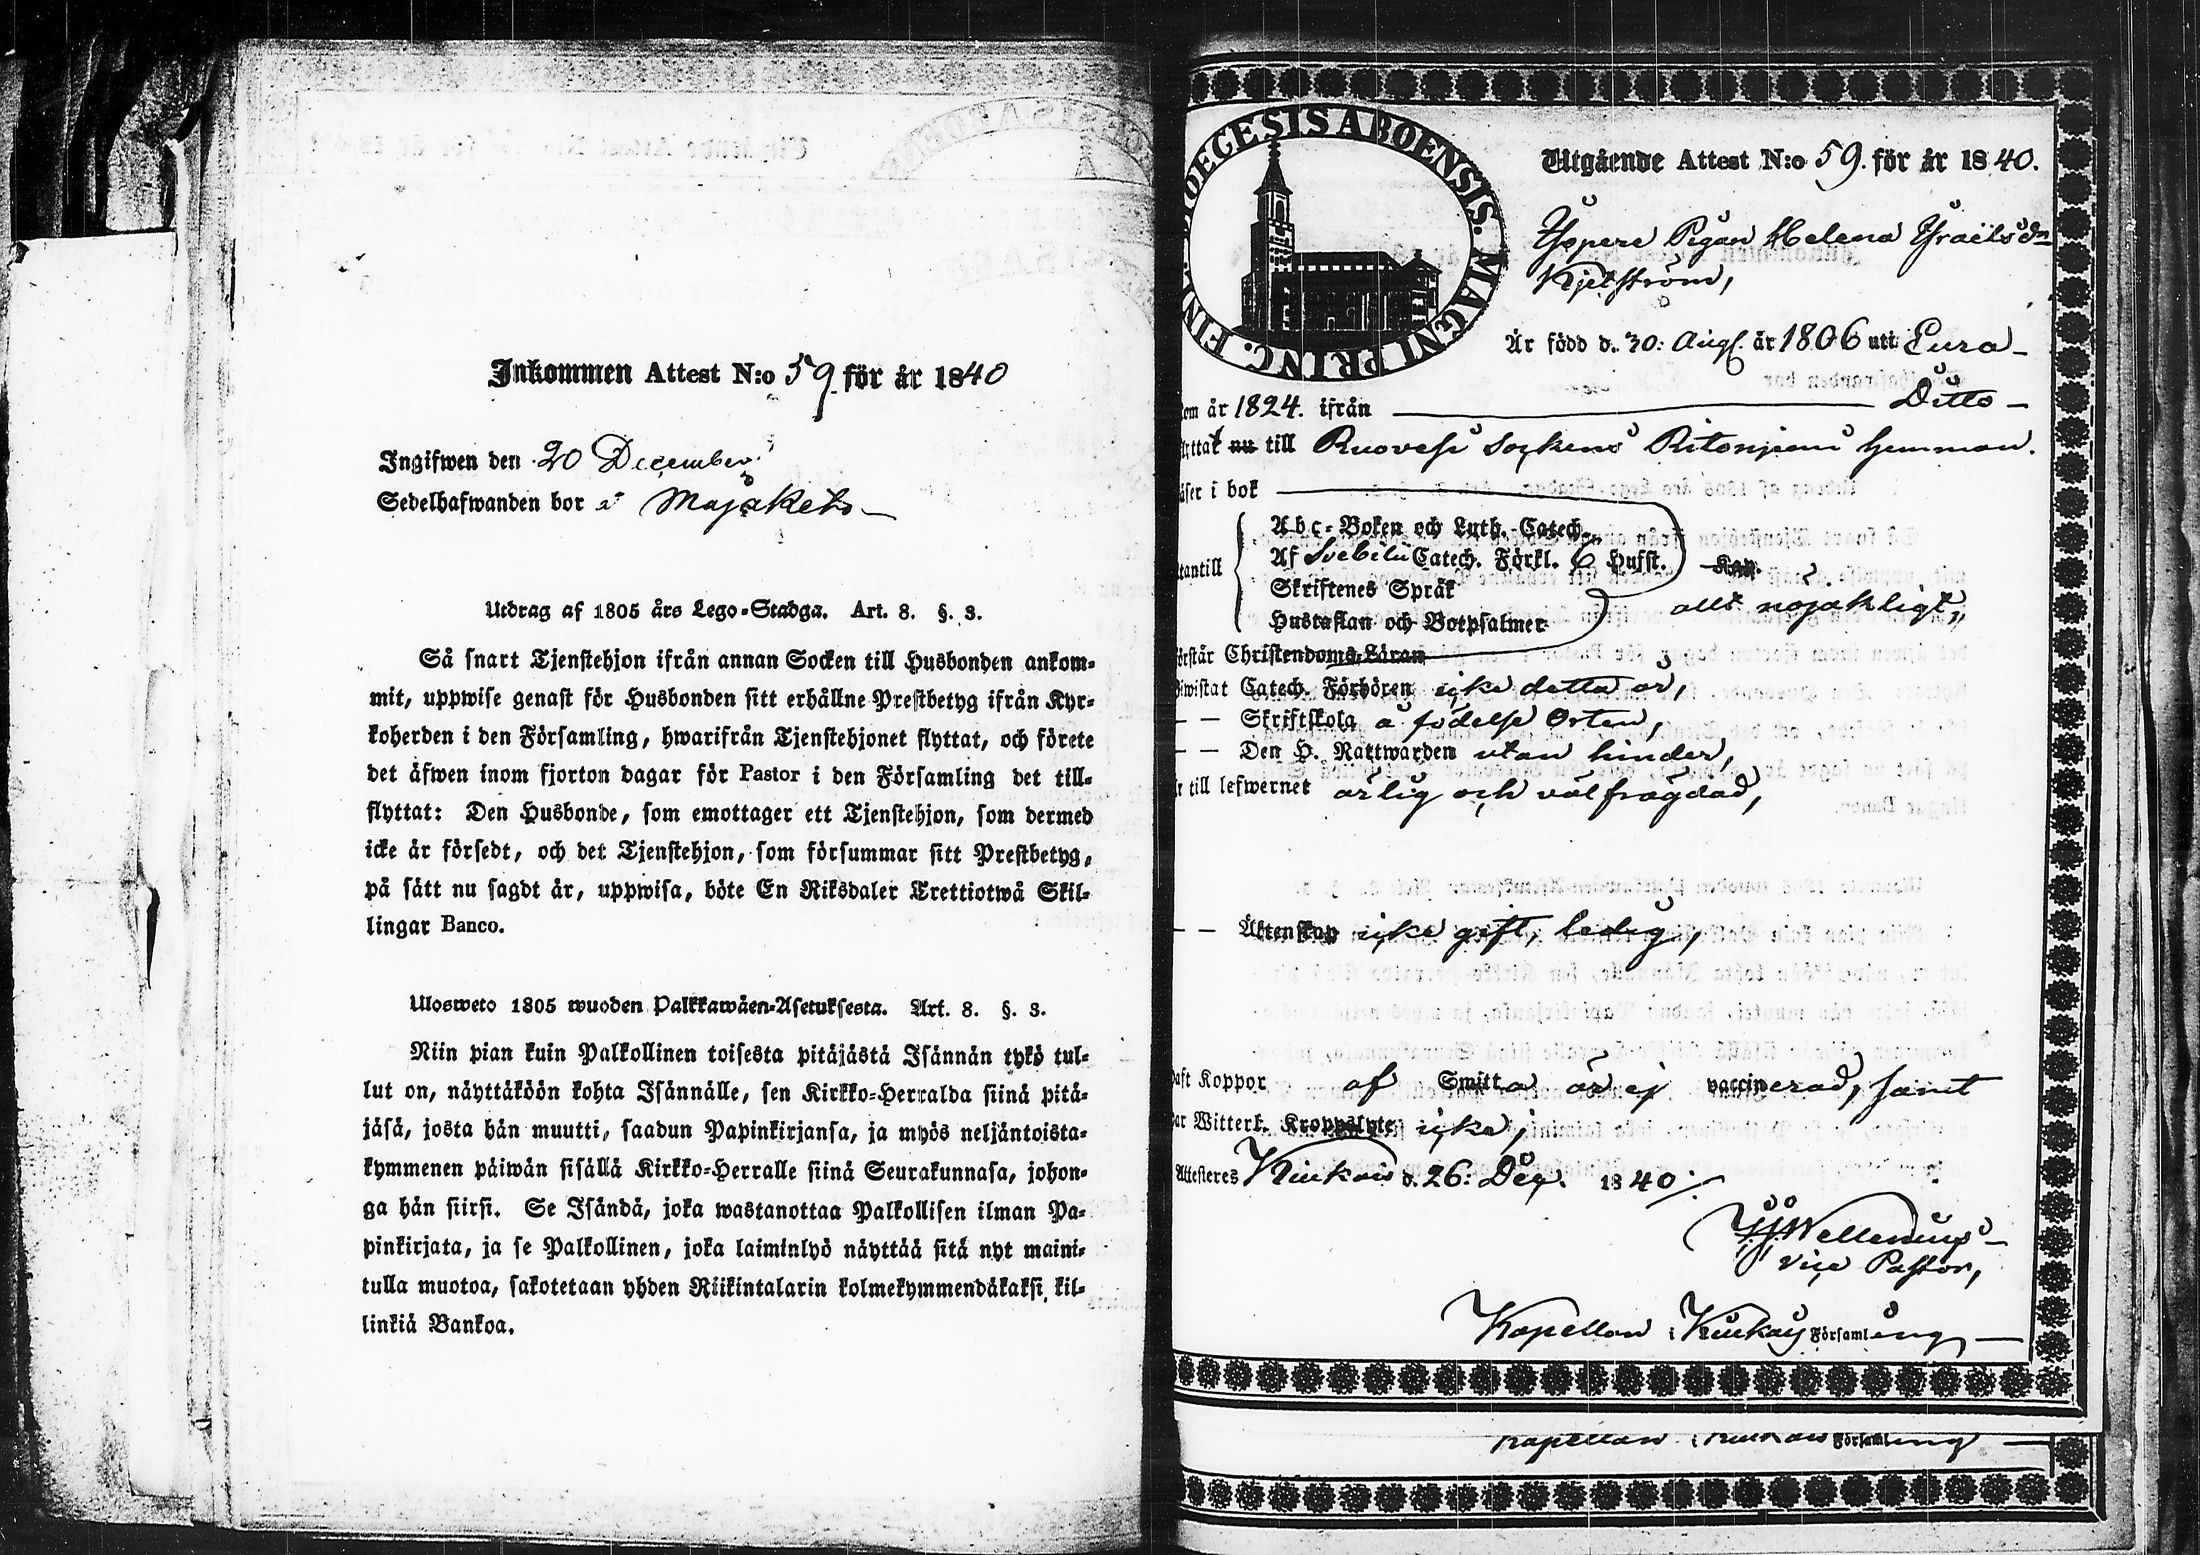 Inkommen Attest N:o 59 för år 1840
Ingifwen den 20 December
Sedelhafwanden bor å Majakets
Utdrag af 1805 års Lego-Stadga. Art. 8. §. 3.
Så snart Tjenstehjon ifrån annan Socken till Husbonden ankom-
mit, uppwise genast för Husbonden sitt erhållne Prestbetyg ifrån Kyr-
koherden i den Församling, hwarifrån Tjenstehjonet flyttat, och förete
det äfwen inom fjorton dagar för Pastor i den Församling det till-
flyttat: Den Husbonde, som emottager ett Tjenstehjon, som dermed
icke är försedt, och det Tjenstehjon, som försummar sitt Prestbetyg,
på sätt nu sagdt är, uppwisa, böte En Riksdaler Trettiotwå Skil-
lingar Banco.
Ulosweto 1805 wuoden Palkkawäen-Asetuksesta. Art. 8. §. 3.
Niin pian kuin Palkollinen toisesta pitäjästä Isännän tykö tul-
lut on, näyttäköön kohta Isännälle, sen Kirkko-Herralda siinä pitä-
jäsä, josta hän muutti, saadun Papinkirjansa, ja myös neljäntoista-
kymmenen päiwän sisällä Kirkko-Herralle siinä Seurakunnasa, johon-
ga hän siirsi. Se Isändä, joka wastanottaa Palkollisen ilman Pa-
pinkirjata, ja se Palkollinen, joka laiminlyö näyttää sitä nyt maini-
tulla muotoa, sakotetaan yhden Riikintalarin kolmekymmendäkaksi kil-
linkiä Bankoa.
DIOECESIS ABOENSIS. MAGNI PRINC. FINL.
Utgående Attest N:o 59. för år 1840.
Pigan Helena Israëlsdr
Kjellström,
Är född d. 30: Aug. år 1806 uti Eura
om år 1824. ifrån Ditto
till Ruovesi Sockens hemman.
äser i bok
tantill
Abc-Boken och Luth. Catech.
Af Svebilii Catech. Förkl. 6 Hufst. Kap.
Skriftenes Språk
Hustaflan och Botpsalmer
allt nöjaktigt,
örstår Christendoms-Läran
iwistat Catech. Förhören icke detta år,
— — Skriftskola å födelse Orten,
— — Den H. Nattwarden utan hinder,
r till lefwernet ärlig och välfrägdad,
— — Äktenskap icke gift, ledig,
aft Koppor af Smitta är ej vaccinerad, samt
ar Witterl. Kroppslyte icke;
Attesteres Kiukais d. 26: Dec. 1840
Wellenius
Vice Pastor,
Kapellan i Kiukais Församling
Kapellan i Kiukais Församling